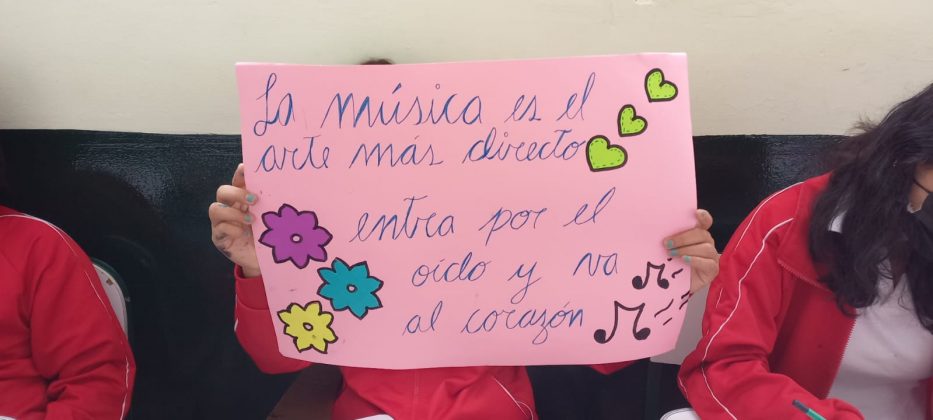 La música es el
arte más directo
entra por el
oído y va
al corazón